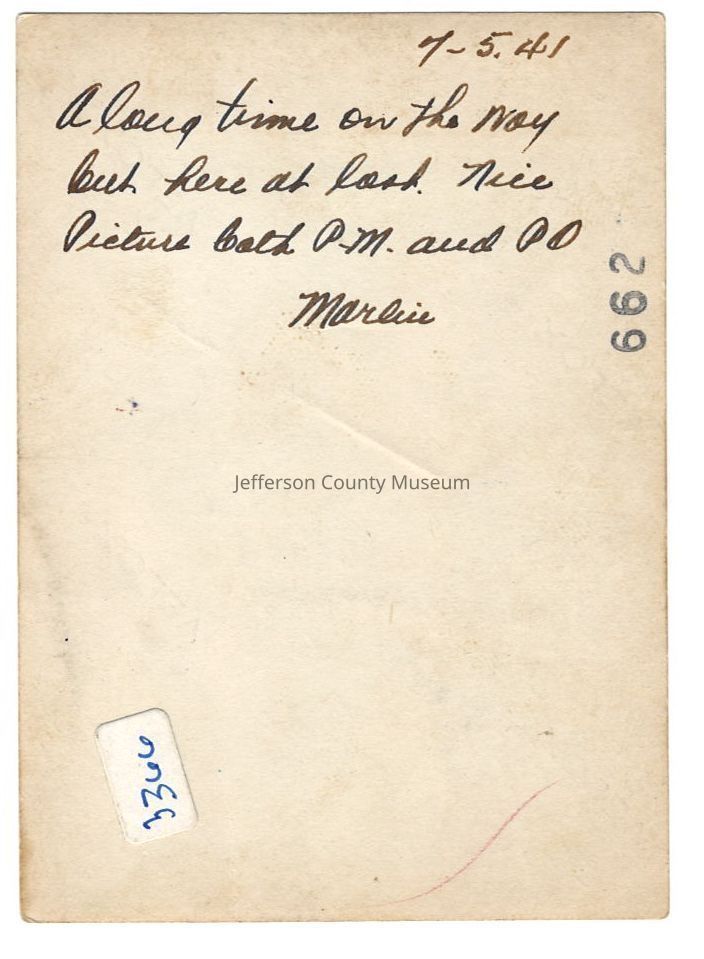 7-5.41
A long time on the way
but here at last. Nice
Picture both P.M. and PO
Marlin
662
Jefferson County Museum